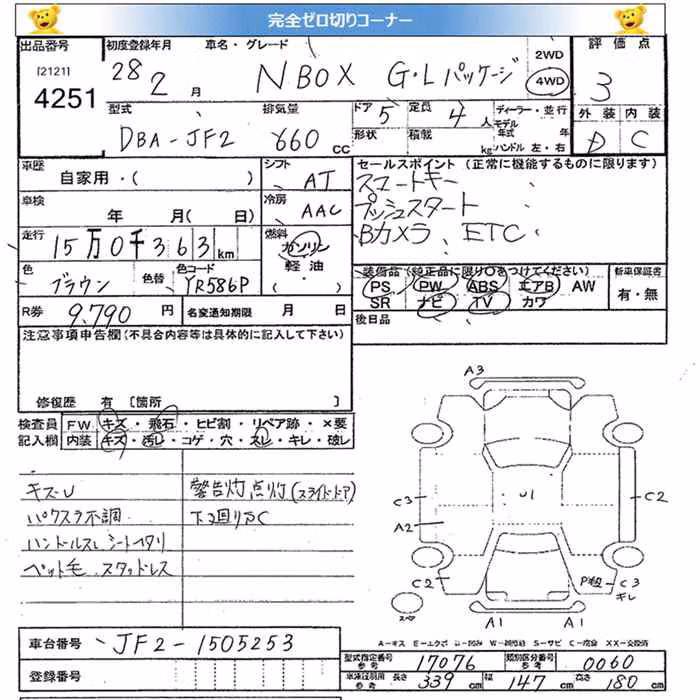 完全ゼロ切りコーナー
出品番号 初度登録年月 車名・グレード 2WD 評価点
[2121] 4251 28 2 月 N BOX G・Lパッケージ 4WD 3
型式 排気量 ドア 5 定員 4 人 ディーラー・並行 外装 内装
DBA-JF2 660 cc 形状 積載 kg モデル年式 年 ハンドル 左・右 D C
車歴 シフト セールスポイント(正常に機能するものに限ります)
自家用・( ) AT スマートキー
車検 冷房 プッシュスタート
年 月( 日) AAC Bカメラ ETC
走行 燃料
15万0千363km ガソリン
軽油 ( ・ )
色 色替 色コード 装備品(純正品に限り○をつけてください) 新車保証書
ブラウン YR586P PS PW ABS エアB AW 有・無
R券 9,790 円 名変通知期限 月 日 SR ナビ TV カワ
注意事項申告欄(不具合内容等は具体的に記入して下さい) 後日品
修復歴 有 [箇所 ]
検査員 FW キズ・飛石・ヒビ割・リペア跡・×要
記入欄 内装 キズ・汚レ・コゲ・穴・スレ・キレ・破レ
キズU 警告灯点灯(スライドドア)
パワスラ不調 下コ回りSC
ハンドルスレ シートヘタリ
ペット毛 スタッドレス
A3
C3 U1 C2
A2
C2 P殺 C3
キレ
スペア A1 A1
車台番号 JF2-1505253
型式指定番号 参考 17076 類別区分番号 参考 0060
登録番号
車庫証明用 参考 長さ 339 cm 幅 147 cm 高さ 180 cm